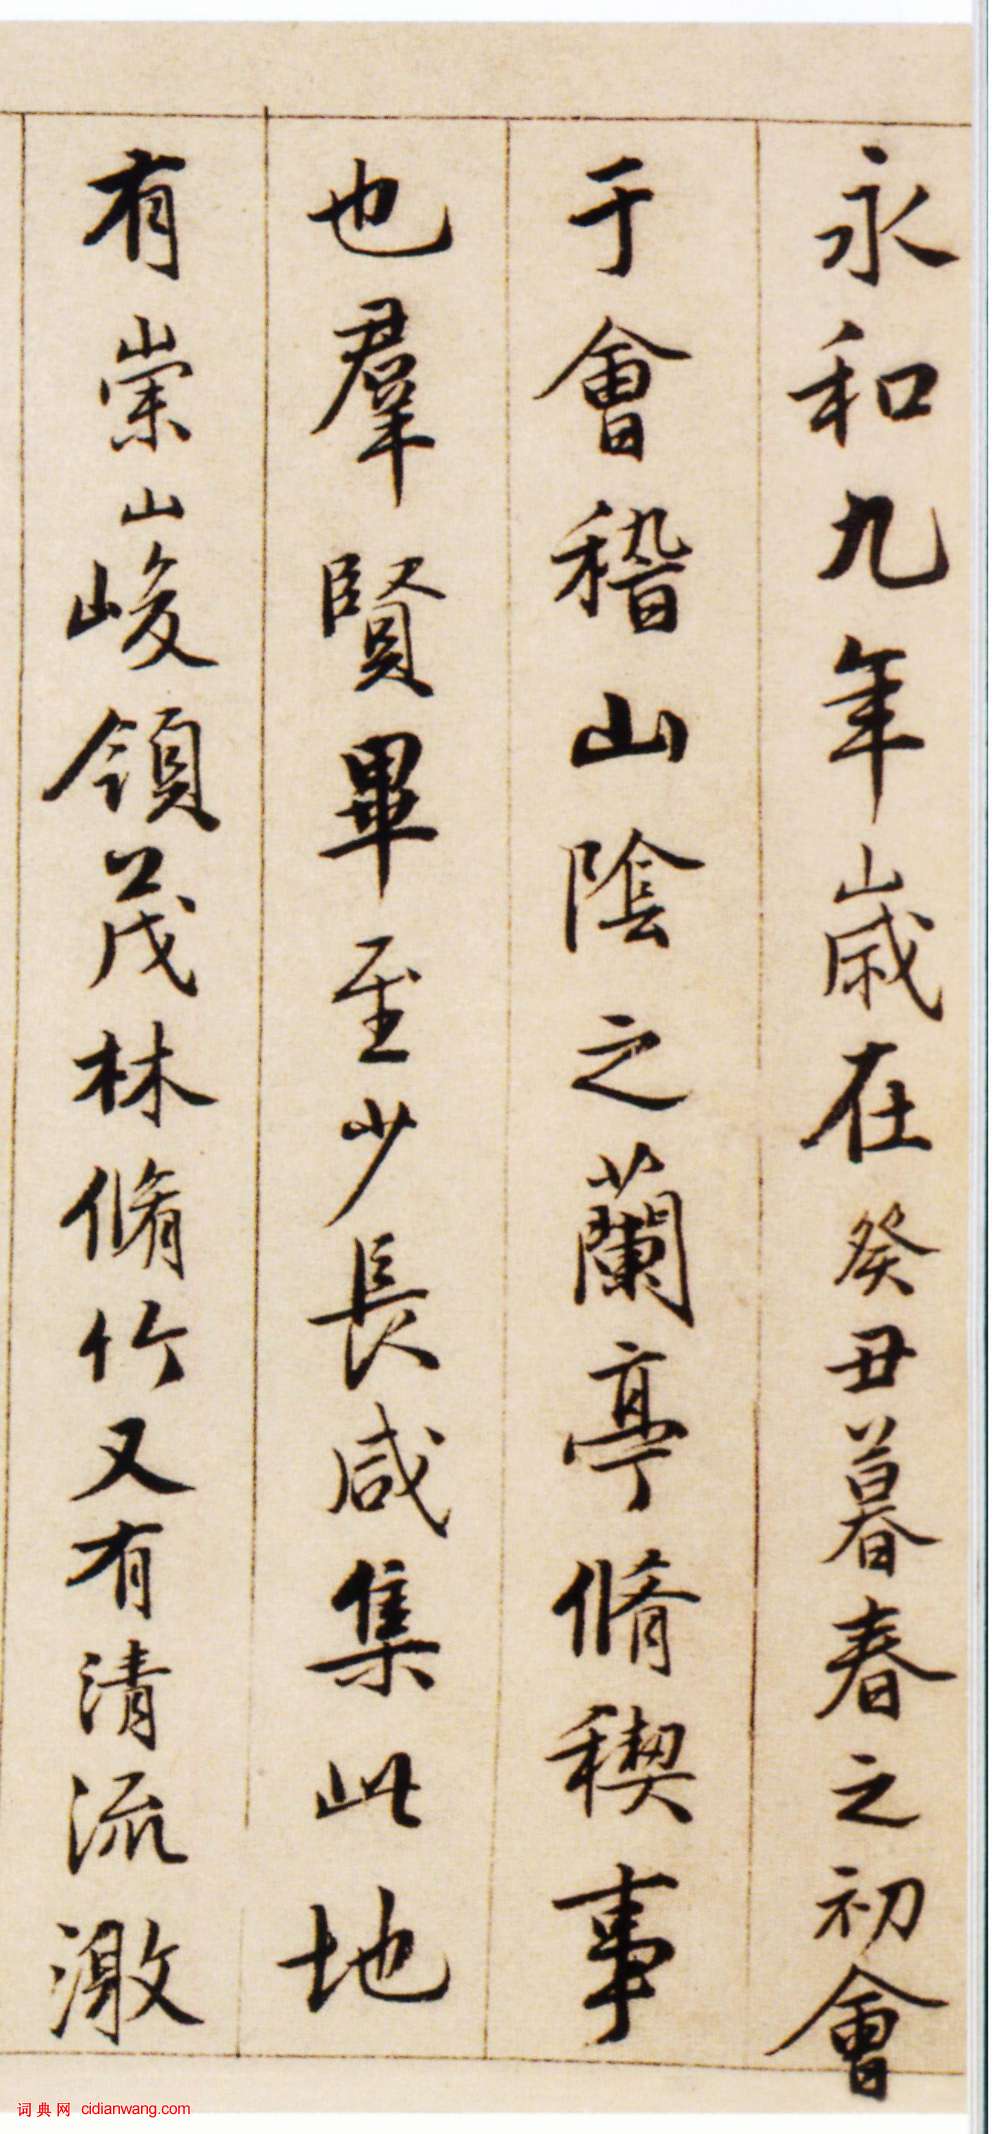 永和九年歲在癸丑暮春之初會
于會稽山陰之蘭亭脩稧事
也羣賢畢至少長咸集此地
有崇山峻領茂林脩竹又有清流激
词典网 cidianwang.com